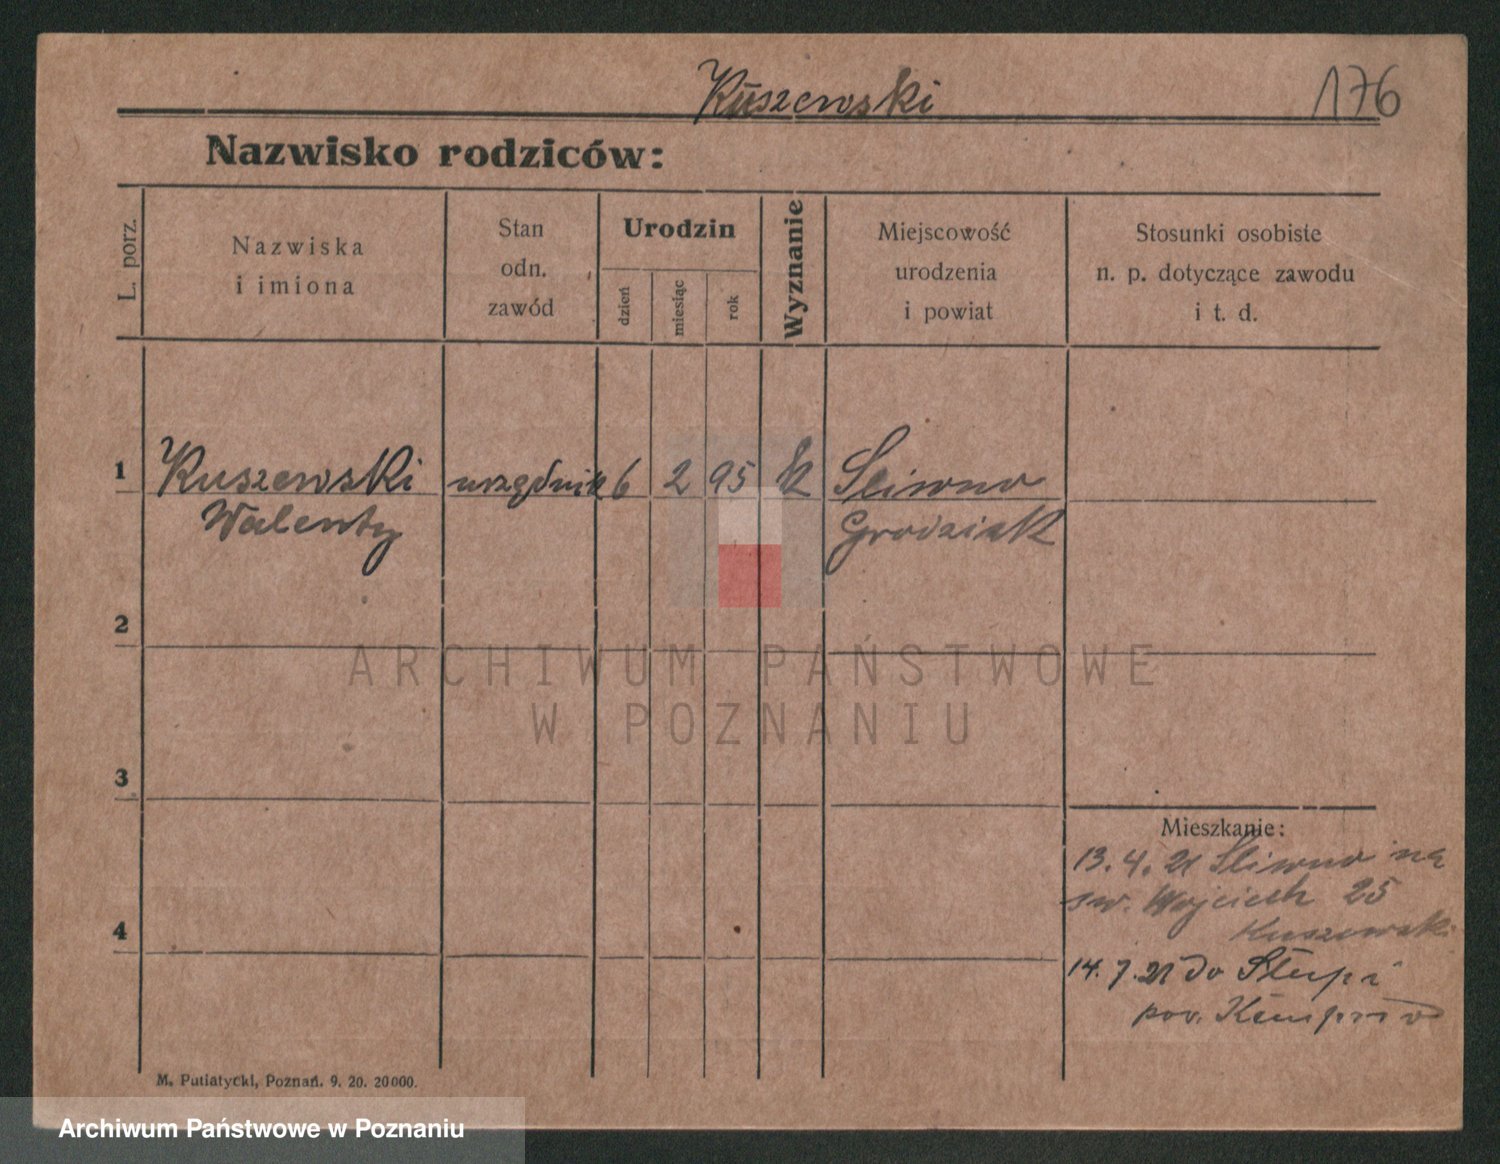 Kuszewski
176
Nazwisko rodziców:
L. porz.
Nazwiska
i imiona
Stan
odn.
zawód
Urodzin
dzień
miesiąc
rok
Wyznanie
Miejscowość
urodzenia
i powiat
Stosunki osobiste
n. p. dotyczące zawodu
i t. d.
1
Kuszewski urzędnik 6 2 95 k Sliwno
Walenty Grodzisk
2
ARCHIWUM PAŃSTWOWE
W POZNANIU
3
Mieszkanie:
13. 4. 21 Sliwno na
św. Wojciech 25
Kuszewski
4
14. 7. 21 do Słupi
pow.
M. Putiatycki, Poznań. 9. 20. 20000.
Archiwum Państwowe w Poznaniu